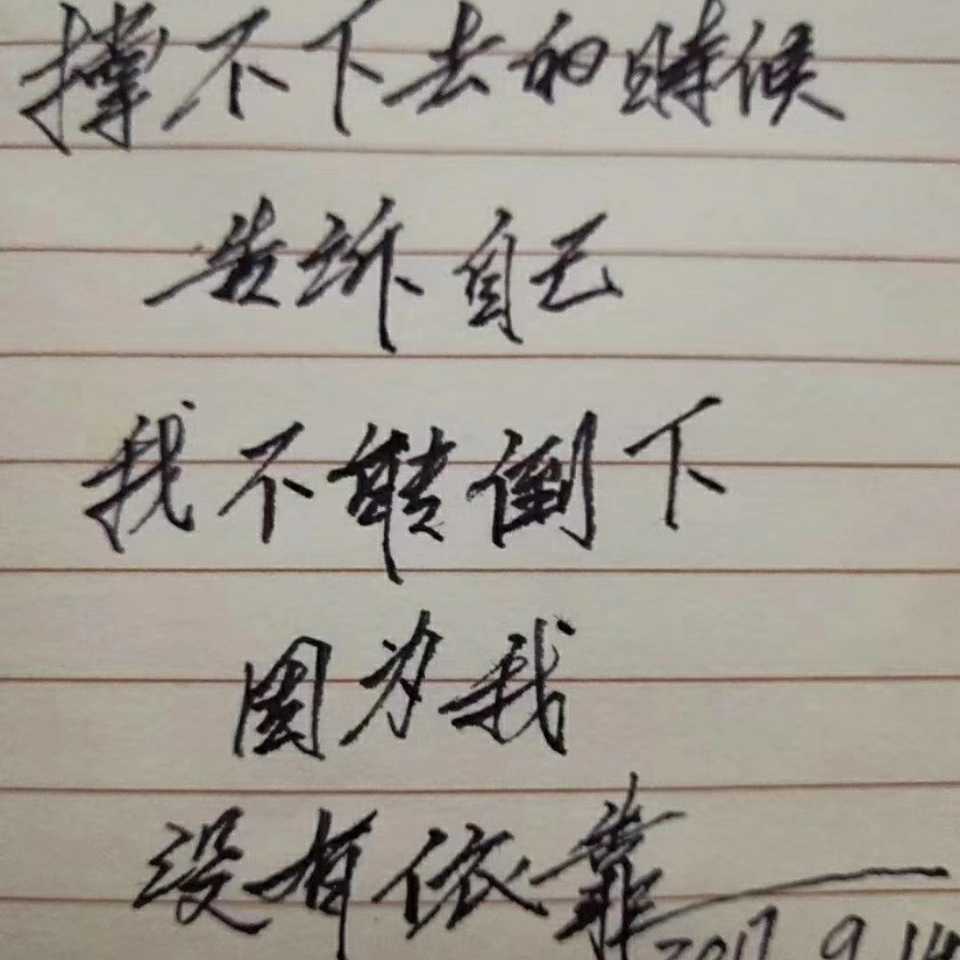 撑不下去的時候
告訴自己
我不能倒下
因为我
没有依靠
2017.9.14